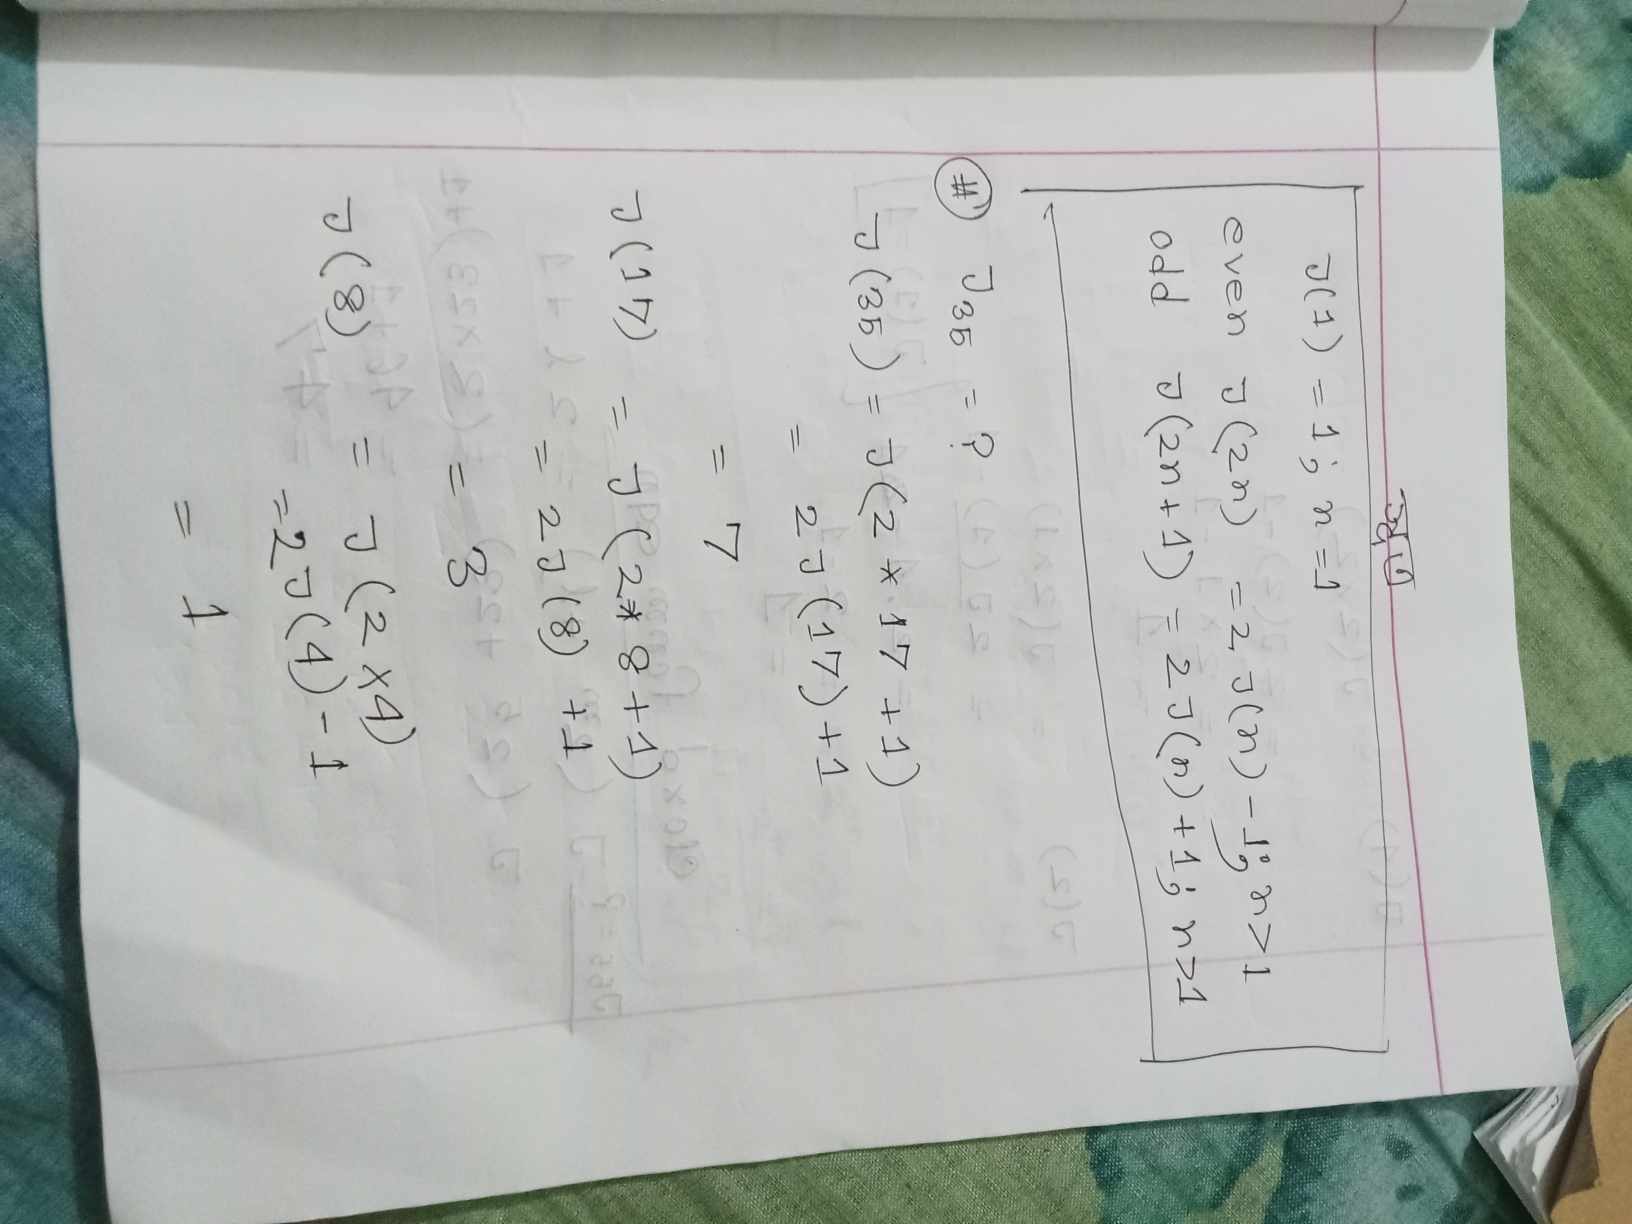 সূত্র
J(1) = 1; n = 1
even J(2n) = 2 J(n) - 1; n > 1
odd J(2n + 1) = 2 J(n) + 1; n > 1
# J35 = ?
J(35) = J(2 * 17 + 1)
= 2J(17) + 1
= 7
J(17) = J(2 * 8 + 1)
= 2J(8) + 1
= 3
J(8) = J(2 × 4)
= 2J(4) - 1
= 1